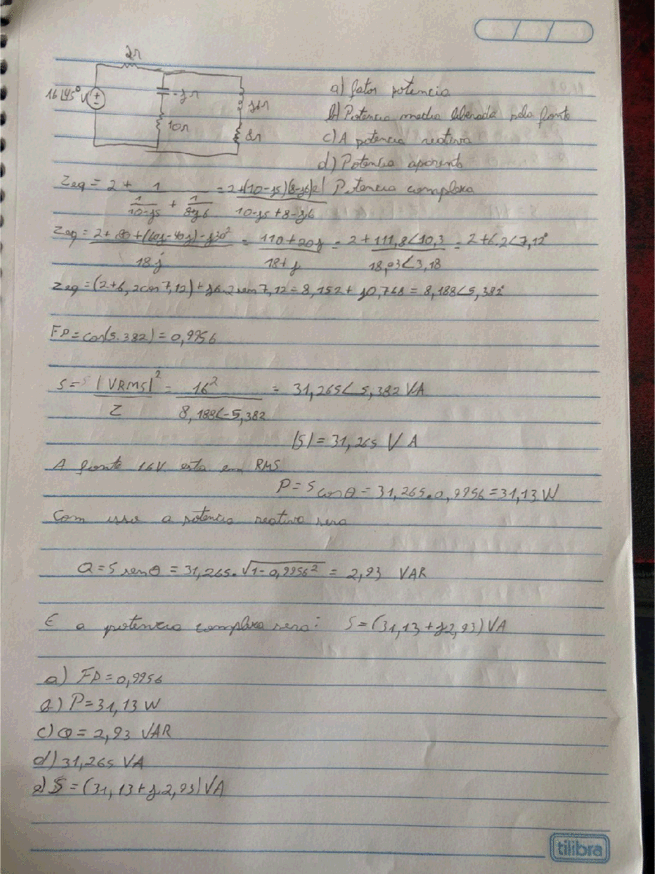 2Ω
16∠45° V
-j Ω
10Ω
8Ω
a) fator potencia
b) Potencia media liberada pela fonte
c) A potencia reativa
d) Potencia aparente
Potencia complexa
Zeq = 2 + 1 / (1/(10-j5) + 1/(8+j6)) = 2+(10-j5)(8-j6) / 10-j5+8-j6
= 110+20j / 18+j = 2+111,8∠10,3 / 18,03∠3,18 = 2+6,2∠7,12°
Zeq = (2+6,2cos7,12)+j6.2sen7,12 = 8,152+j0,768 = 8,188∠5,382
FP = cos(5.382) = 0,9956
S = |VRMS|² / Z = 16² / 8,188∠-5,382 = 31,265∠5,382 VA
|S| = 31,265 VA
A fonte 16V esta em RMS
P = S cosθ = 31,265.0,9956 = 31,13 W
Com isso a potencia reativa sera
Q = S senθ = 31,265.√1-0,9956² = 2,93 VAR
E a potencia complexa sera: S = (31,13+j2,93) VA
a) FP = 0,9956
b) P = 31,13 W
c) Q = 2,93 VAR
d) 31,265 VA
e) S = (31,13+j.2,93) VA
tilibra